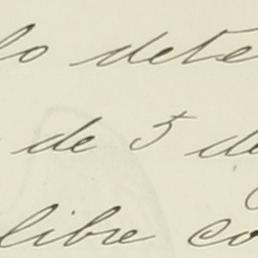 lo dete
de 5 de
libre co